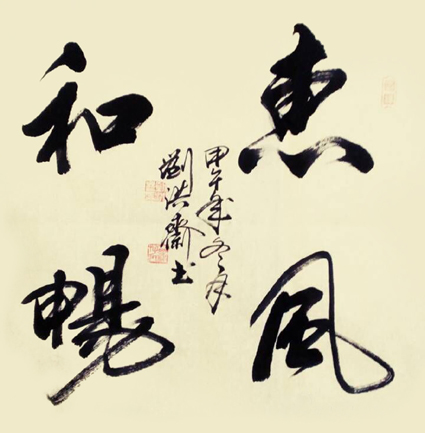 惠風
和暢
甲午年冬月
劉洪齋書